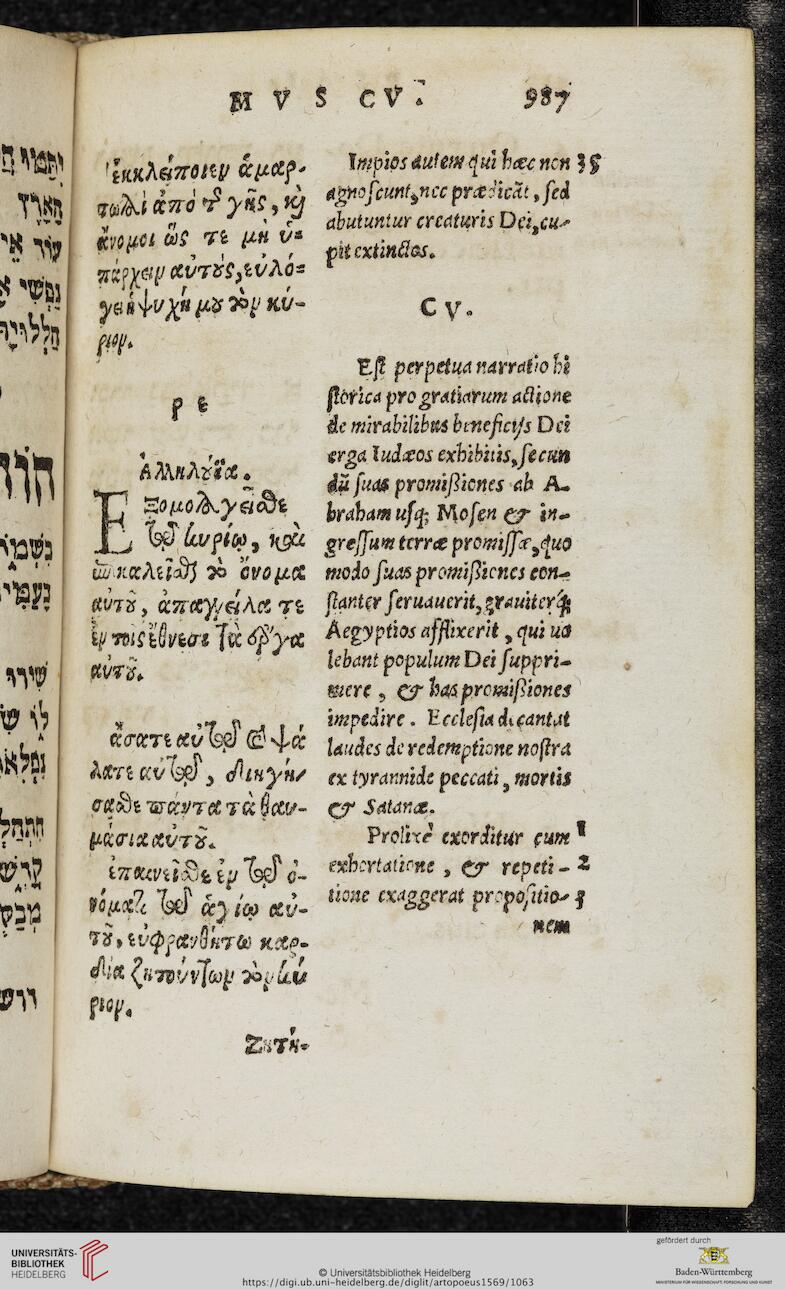 MVSCV. 987
ἐκκλείποιεν ἁμαρ-
τωλοὶ ἀπὸ τ͂ γῆς, κ̀
ἄνομοι ὥς τε μὴ ὑ-
πάρχειν αὐτȣ́ς, εὐλό-
γει ἡ ψυχή μȣ τὸν κύ-
ριον.
ρε
Ἀλληλȣ́ϊα.
ΕΞομολογεῖσθε
τῷ κυρίῳ, καὶ
ἐπικαλεῖσθε τὸ ὄνομα
αὐτȣ͂, ἀπαγγείλα τε
ἐν τοῖς ἔθνεσι τὰ ἔργα
αὐτȣ͂.
ᾄσατε αὐτῷ καὶ ψά
λατε αὐτῷ, διηγή-
σασθε πάντα τὰ θαυ-
μάσια αὐτȣ͂.
ἐπαινεῖσθε ἐν τῷ ὀ-
νόματι τῷ ἁγίῳ αὐ-
τȣ͂, εὐφρανθήτω καρ-
δία ζητούντων τὸν κύ
ριον.
Ζητή-
Impios autem qui hæc non 35
agnoscunt, nec prædicãt, sed
abutuntur creaturis Dei, cu-
pit extinctos.
CV.
Est perpetua narratio hi
storica pro gratiarum actione
de mirabilibus beneficijs Dei
erga Iudæos exhibitis, secun
dũ suas promißiones ab A-
braham usq; Mosen & in-
gressum terræ promissæ, quo
modo suas promißiones con-
stanter seruauerit, grauiterq́;
Aegyptios afflixerit, qui uo
lebant populum Dei suppri-
mere, & has promißiones
impedire. Ecclesia dicantat
laudes de redemptione nostra
ex tyrannide peccati, mortis
& Satanæ.
Prolixè exorditur cum 1
exhortatione, & repeti- 2
tione exaggerat propositio- 3
nem
יִתַּמּוּ חַ
הָאָרֶץ
עוֹד אֵי
נַפְשִׁי אֶ
הַלְלוּיָהּ
הוֹדוּ
בִּשְׁמוֹ
בָעַמִּי
שִׁירוּ
לוֹ שִׂ
נִפְלְאוֹ
הִתְהַלְ
קָדְשׁוֹ
מְבַקְ
דרשו
UNIVERSITÄTS-
BIBLIOTHEK
HEIDELBERG
© Universitätsbibliothek Heidelberg
https://digi.ub.uni-heidelberg.de/diglit/artopoeus1569/1063
gefördert durch
Baden-Württemberg
MINISTERIUM FÜR WISSENSCHAFT, FORSCHUNG UND KUNST